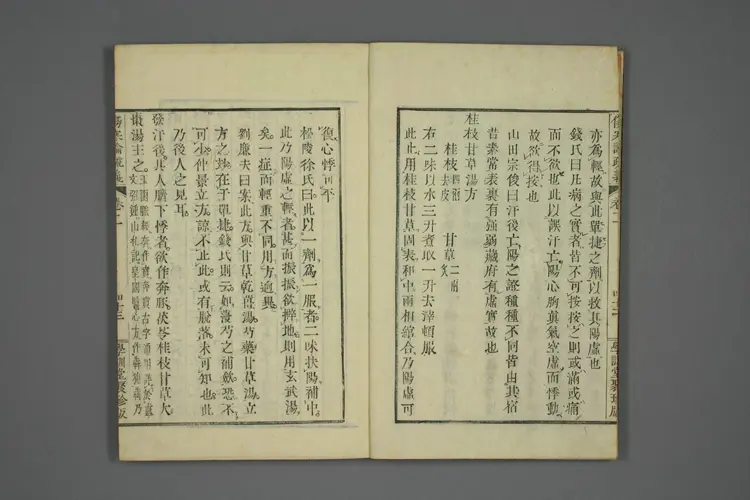 亦爲輕故與此單捷之劑以救其陽虛也
錢氏曰凡病之實者皆不可按按之則或滿或痛
而不欲也此以誤汗亡陽心胸眞氣空虛而悸動
故欲得按也
山田宗俊曰汗後亡陽之證種種不同皆由其宿
昔素常表裏有強弱藏府有虛實故也
桂枝甘草湯方
桂枝四兩去皮 甘草二兩炙
右二味以水三升煮取一升去滓頓服
此止用桂枝甘草固表和中兩相綰合乃陽虛可
復心悸可平
松陵徐氏曰此以一劑爲一服者二味扶陽補中
此乃陽虛之輕者甚而振振欲擗地則用玄武湯
矣一症而輕重不同用方逈異
劉廉夫曰案此方與甘草乾薑湯芍藥甘草湯立
方之妙在于單捷錢氏則云如沒芍之補斂恐不
可少仲景立方諒不止此或有脫落未可知也此
乃後人之見耳
發汗後其人臍下悸者欲作奔豚茯苓桂枝甘草大
棗湯主之
傷寒論疏義 卷二 學訓堂聚珍版